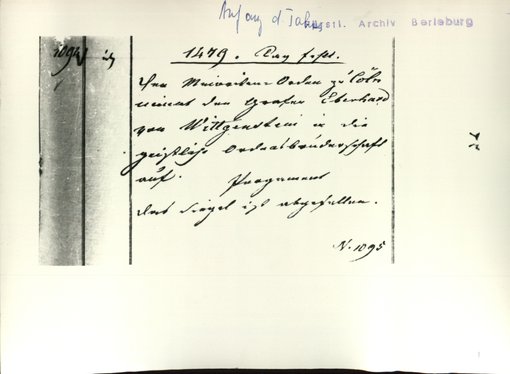 Anfang d. Jahres
Fürstl. Archiv Berleburg
1094
1479. Tag fehlt.
Der Minoriten Orden zu Cöln
nimmt den Grafen Eberhard
von Wittgenstein in die
geistliche Ordensbrüderschaft
auf. Pergament
das Siegel ist abgefallen.
N. 1095